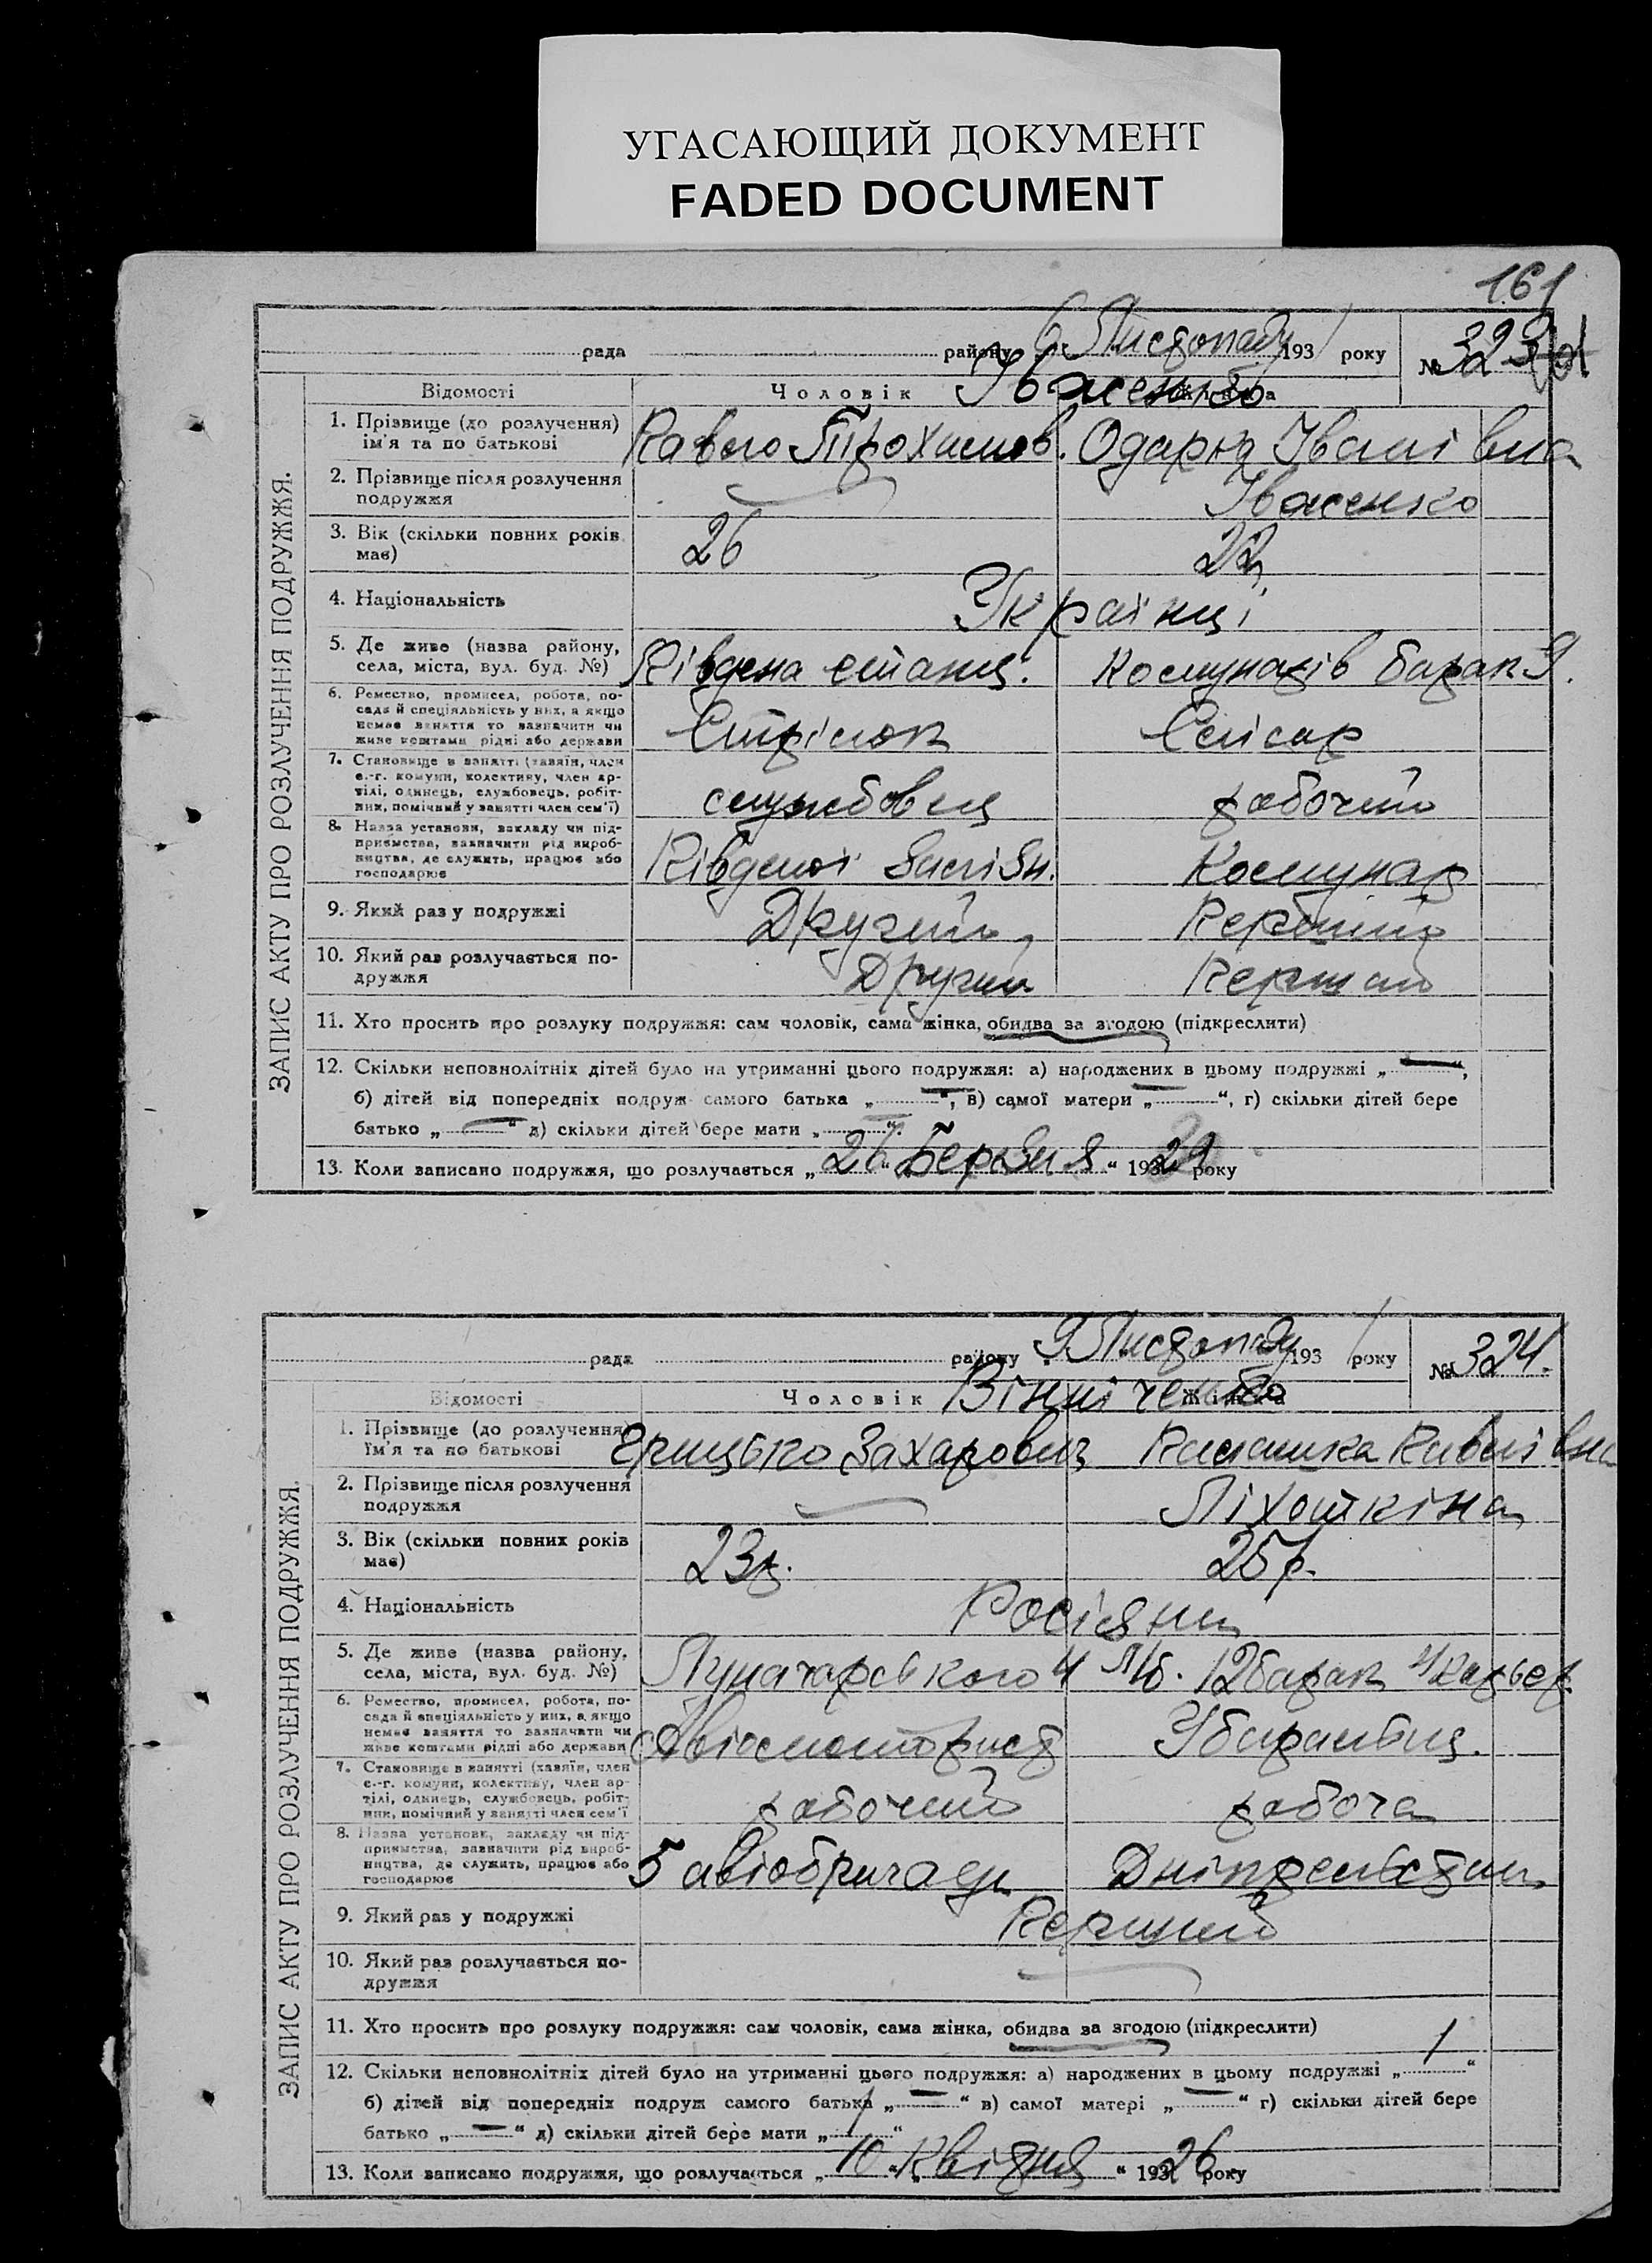 УГАСАЮЩИЙ ДОКУМЕНТ
FADED DOCUMENT
161
ЗАПИС АКТУ ПРО РОЗЛУЧЕННЯ ПОДРУЖЖЯ.
рада району 6 Листопаду 1931 року № 323
Відомості Чоловік Жінка
Івженко
1. Прізвище (до розлучення)
ім'я та по батькові
Павло Трохимов. Одарка Іванівна
2. Прізвище після розлучення
подружжя
Івженко
3. Вік (скільки повних років
має)
26 22
4. Національність Українці
5. Де живе (назва району,
села, міста, вул. буд. №)
Південа станц. Комунарів барак 9.
6. Ремество, промисел, робота, по-
сада й спеціяльність у них, а якщо
немає заняття то зазначити чи
живе коштами рідні або держави
Стрілок Слюсар
7. Становище в занятті (хазяїн, член
с.-г. комуни, колективу, член ар-
тілі, одинець, службовець, робіт-
ник, помічний у занятті член сем'ї)
службовец рабочий
8. Назва установи, закладу чи під-
приємства, зазначити рід вироб-
ництва, де служить, працює або
господарює
Південої Залізн. Комунар
9. Який раз у подружжі Другий Перший
10. Який раз розлучається по-
дружжя
Другий Перший
11. Хто просить про розлуку подружжя: сам чоловік, сама жінка, обидва за згодою (підкреслити)
12. Скільки неповнолітніх дітей було на утриманні цього подружжя: а) народжених в цьому подружжі „ — “,
б) дітей від попередніх подруж самого батька „ — “, в) самої матери „ — “, г) скільки дітей бере
батько „ — “ д) скільки дітей бере мати „ — “.
13. Коли записано подружжя, що розлучається „ 26 “ Березня “ 1929 року
ЗАПИС АКТУ ПРО РОЗЛУЧЕННЯ ПОДРУЖЖЯ.
рада району 9 Листопаду 1931 року № 324.
Відомості Чоловік Жінка
Вінніченко
1. Прізвище (до розлучення)
ім'я та по батькові
Грицько Захарович Павлівна
2. Прізвище після розлучення
подружжя
Ліхоткіна
3. Вік (скільки повних років
має)
23р. 25р.
4. Національність Росіяни
5. Де живе (назва району,
села, міста, вул. буд. №)
Луначарського 4 12 барак
6. Ремество, промисел, робота, по-
сада й спеціяльність у них, а якщо
немає заняття то зазначити чи
живе коштами рідні або держави
Авіомоторист Убиральниц.
7. Становище в занятті (хазяїн, член
с.-г. комуни, колективу, член ар-
тілі, одинець, службовець, робіт-
ник, помічний у занятті член сем'ї
рабочий рабоча
8. Назва установи, закладу чи під-
приємства, зазначити рід вироб-
ництва, де служить, працює або
господарює
5 авіобригади Дніпрельстан
9. Який раз у подружжі Перший
10. Який раз розлучається по-
дружжя
11. Хто просить про розлуку подружжя: сам чоловік, сама жінка, обидва за згодою (підкреслити)
12. Скільки неповнолітніх дітей було на утриманні цього подружжя: а) народжених в цьому подружжі „ 1 “
б) дітей від попередніх подруж самого батька „ — “ в) самої матері „ — “ г) скільки дітей бере
батько „ — “ д) скільки дітей бере мати „ 1 “
13. Коли записано подружжя, що розлучається „ 10 “ Квітня “ 1926 року